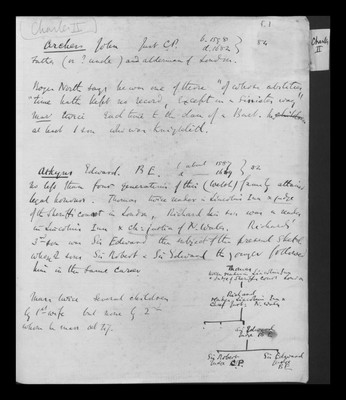 Charles II
81
Charles II
Archer John Just C.P. b. 1598 d. 1682 } 84
Father (or ? uncle) and alderman of London.
Roger North says he was one of those "of whose abilities
"time hath kept no record, except in a sinister way"
Marr twice each time to the daur of a Bart.
at least 1 son who was knighted.
Atkyns Edward. B E. { about 1587 d 1669 } 82
No less than four generations of this (Welsh) family attained
legal honours. Thomas twice reader in Lincoln's Inn & judge
of the Sheriff's court in London, Richard his son was a reader
in Lincoln's Inn & ch: justice of N. Wales. Richard's
3rd son was Sir Edward the subject of the present sketch
whose 2 sons Sir Robert & Sir Edward the younger followed
him in the same career
Marr twice several children
by 1st wife but none by 2nd
whom he marr at 
Thomas
twice reader in Lincoln's Inn
& Judge of Sheriff's court London
Richard
reader Lincoln's Inn &
Chief Just. N. Wales
Sir Edward
Judge
Sir Robert
Judge C.P.
Sir Edward
Judge
B.E.